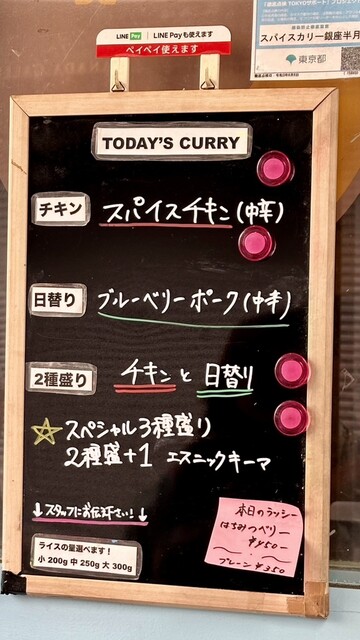 LINE Pay LINE Payも使えます
ペイペイ使えます
スパイスカリー銀座半月
東京都
TODAY'S CURRY
チキン スパイスチキン(中辛)
日替り ブルーベリーポーク(中辛)
2種盛り チキンと日替り
☆スペシャル3種盛り
2種盛+1 エスニックキーマ
↓スタッフにお伝え下さい!↓
ライスの量選べます!
小 200g 中 250g 大 300g
本日のラッシー
はちみつベリー
¥450-
プレーン ¥350